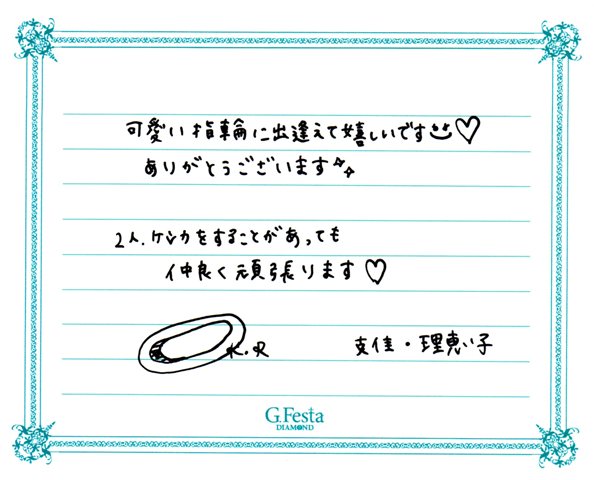 可愛い指輪に出逢えて嬉しいです♡
ありがとうございます
2人.ケンカをすることがあっても
仲良く頑張ります♡
K.R
支佳・理恵子
G.Festa
DIAMOND